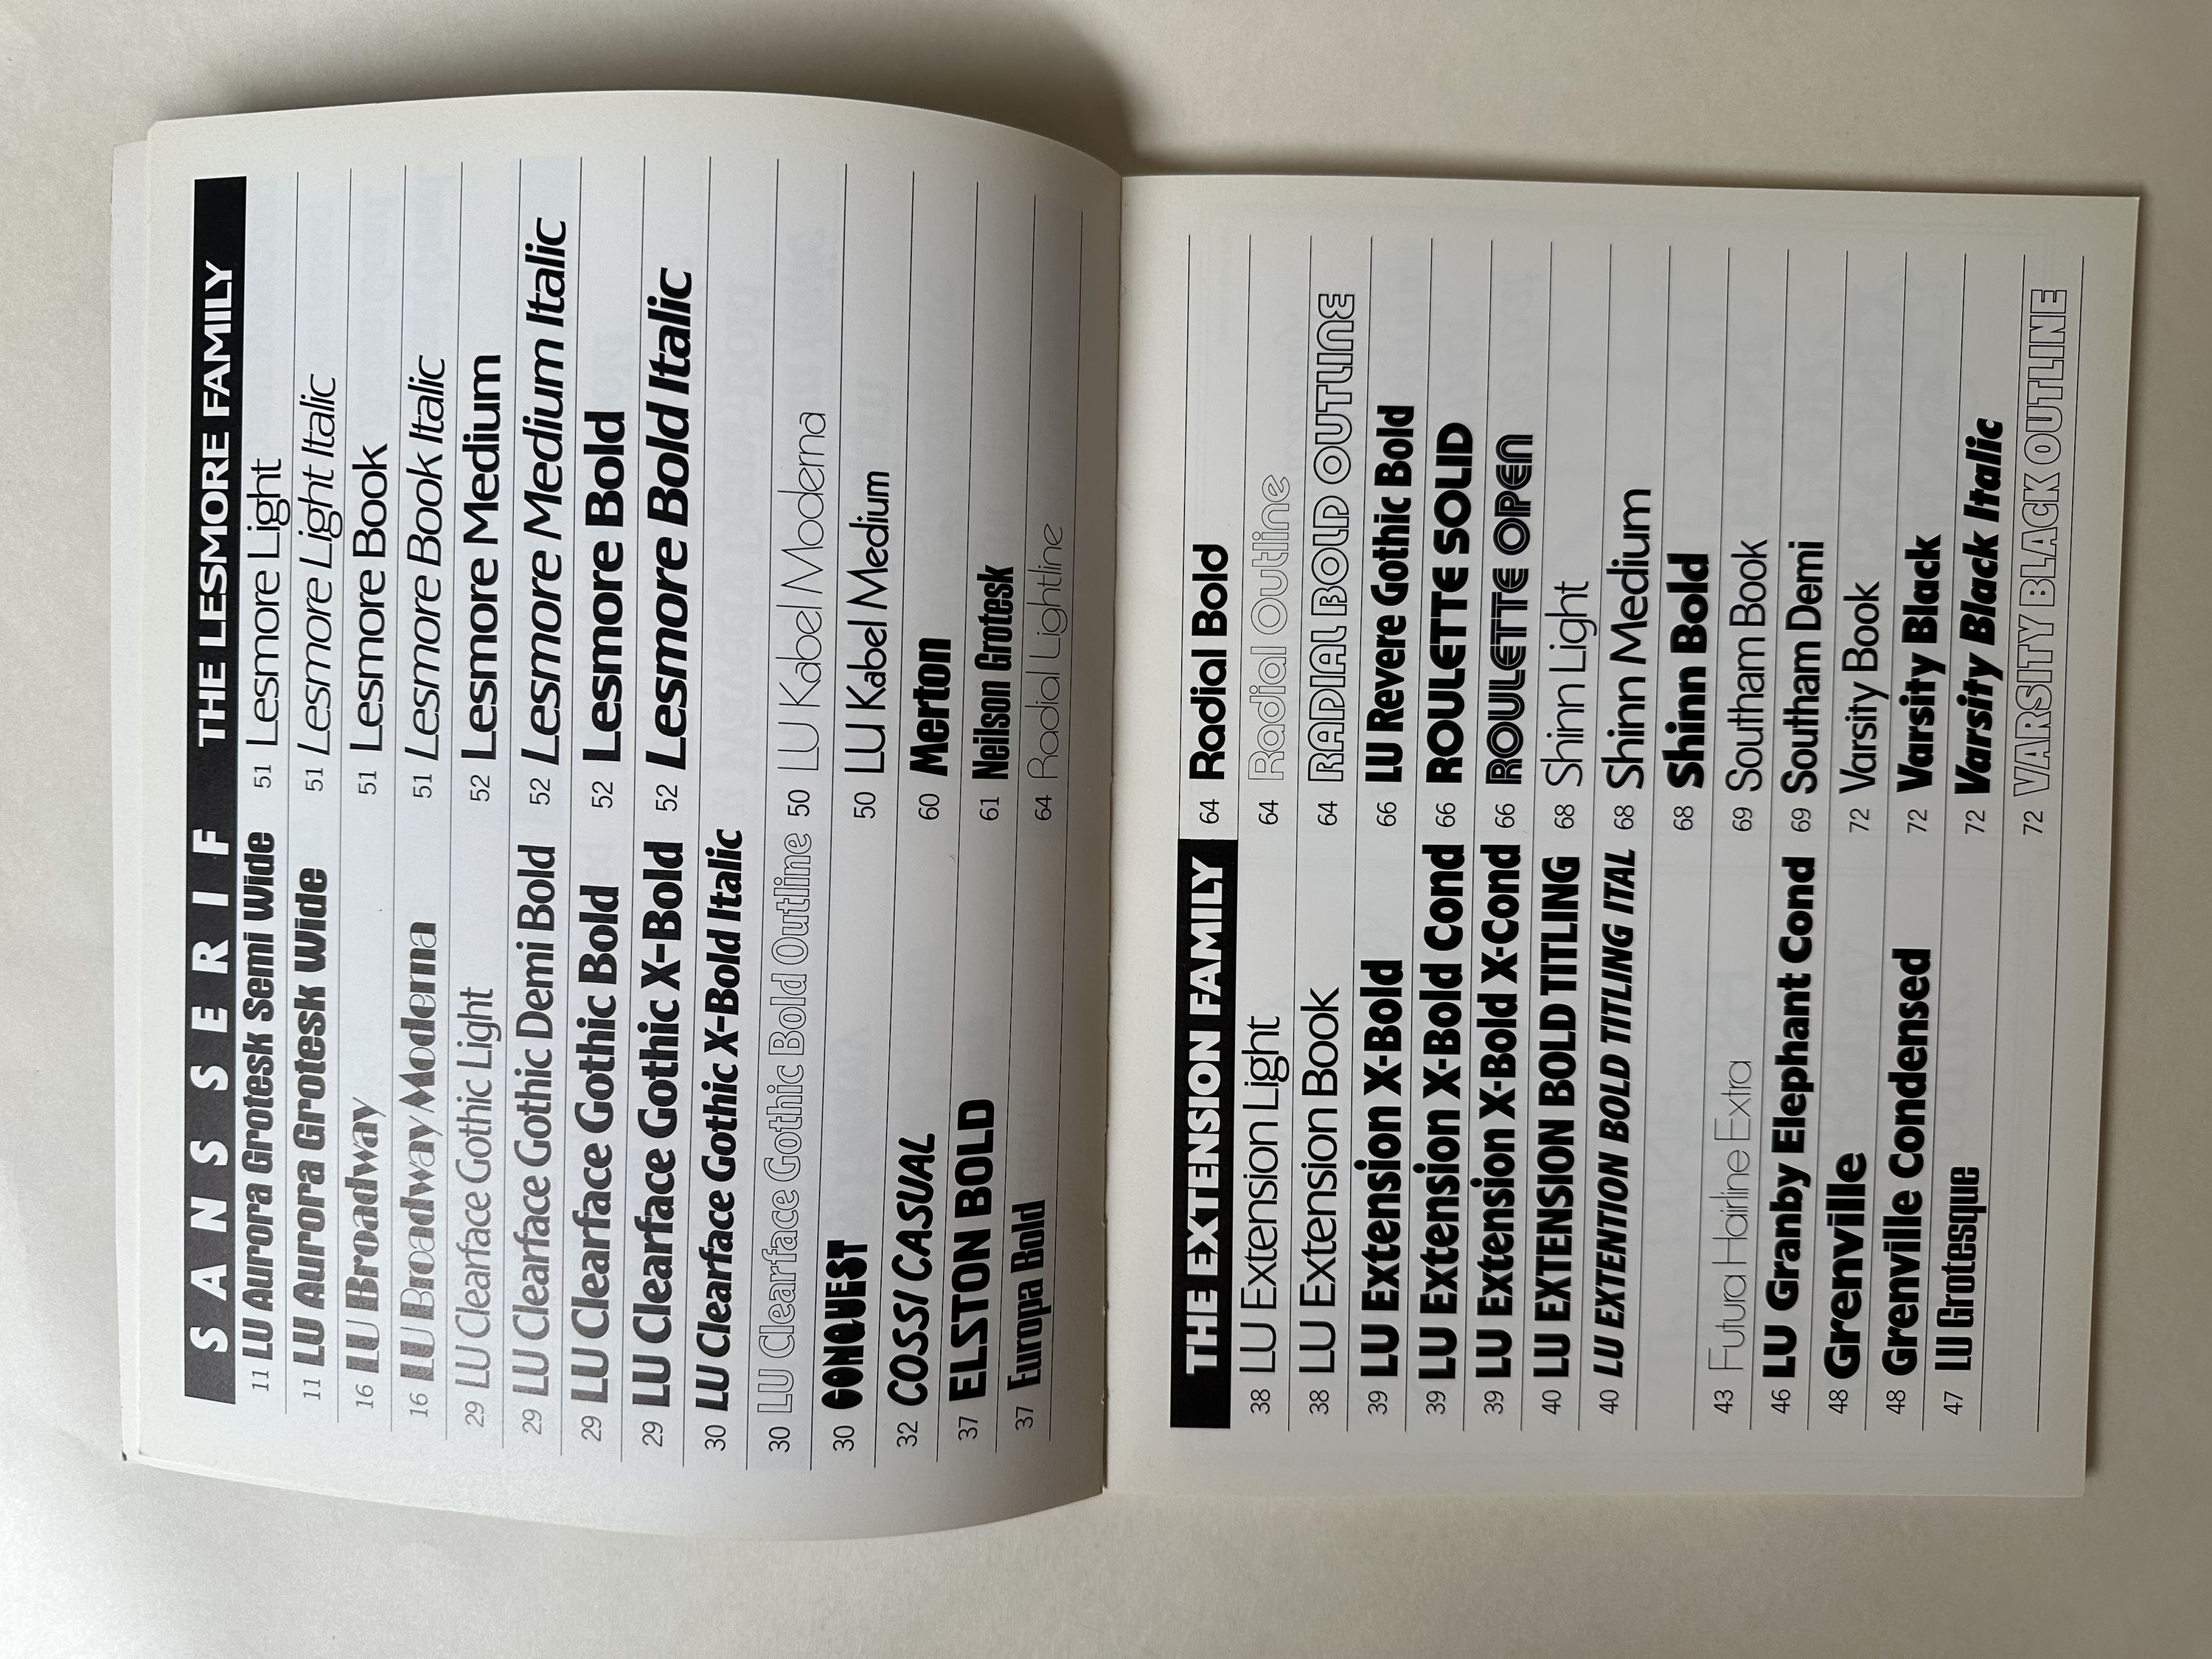 SANS SERIF
11 LU Aurora Grotesk Semi Wide
11 LU Aurora Grotesk Wide
16 LU Broadway
16 LU Broadway Moderna
29 LU Clearface Gothic Light
29 LU Clearface Gothic Demi Bold
29 LU Clearface Gothic Bold
29 LU Clearface Gothic X-Bold
30 LU Clearface Gothic X-Bold Italic
30 LU Clearface Gothic Bold Outline
30 CONQUEST
32 COSSI CASUAL
37 ELSTON BOLD
37 Europa Bold
THE LESMORE FAMILY
51 Lesmore Light
51 Lesmore Light Italic
51 Lesmore Book
51 Lesmore Book Italic
52 Lesmore Medium
52 Lesmore Medium Italic
52 Lesmore Bold
52 Lesmore Bold Italic
50 LU Kabel Moderna
50 LU Kabel Medium
60 Merton
61 Neilson Grotesk
64 Radial Lightline
THE EXTENSION FAMILY
38 LU Extension Light
38 LU Extension Book
39 LU Extension X-Bold
39 LU Extension X-Bold Cond
39 LU Extension X-Bold X-Cond
40 LU EXTENSION BOLD TITLING
40 LU EXTENTION BOLD TITLING ITAL
43 Futura Hairline Extra
46 LU Granby Elephant Cond
48 Grenville
48 Grenville Condensed
47 LU Grotesque
64 Radial Bold
64 Radial Outline
64 RADIAL BOLD OUTLINE
66 LU Revere Gothic Bold
66 ROULETTE SOLID
66 ROULETTE OPEN
68 Shinn Light
68 Shinn Medium
68 Shinn Bold
69 Southam Book
69 Southam Demi
72 Varsity Book
72 Varsity Black
72 Varsity Black Italic
72 VARSITY BLACK OUTLINE